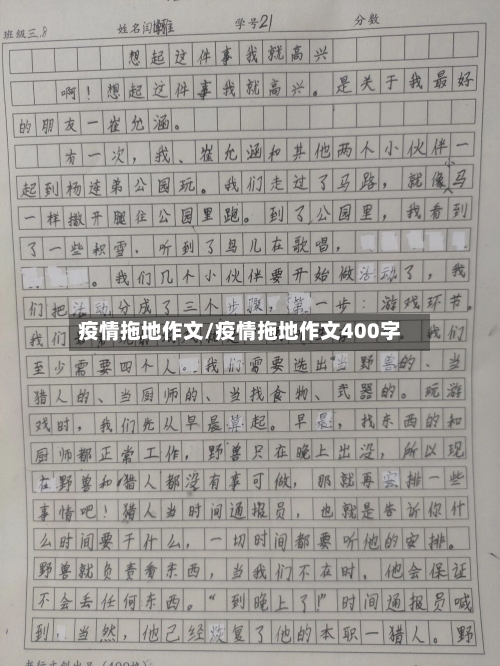 班级三.8 姓名闫 雅 学号21 分数
想起这件事我就高兴
啊！想起这件事我就高兴。是关于我最好
的朋友一崔允涵。
有一次，我、崔允涵和其他两个小伙伴一
起到杨连弟公园玩。我们走过了马路，就像马
一样撒开腿往公园里跑。到了公园里，我看到
了一些积雪，听到了鸟儿在歌唱，
。我们几个小伙伴要开始做活动了，我
们把活动分成了三个步骤，第一步：游戏环节。
疫情拖地作文/疫情拖地作文400字
我们
至少需要四个人。我们需要选出当野兽的、当
猎人的、当厨师的、当找食物、武器的。玩游
戏时，我们先从早晨算起。早晨，找东西的和
厨师都正常工作，野兽只在晚上出没，所以现
在野兽和猎人都没有事可做，那就再安排一些
事情吧！猎人当时间通报员，也就是告诉你什
么时间要干什么，一切时间都要听他的安排。
野兽就负责看东西，当我们不在时，他会保证
不会丢任何东西。“到晚上了！”时间通报员喊
到，当然，他已经恢复了他的本职一猎人。野